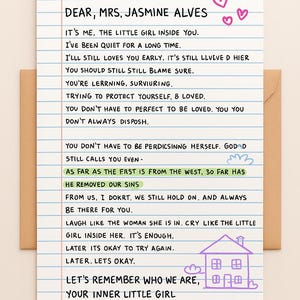 DEAR, MRS. JASMINE ALVES
IT'S ME, THE LITTLE GIRL INSIDE YOU.
I'VE BEEN QUIET FOR A LONG TIME.
I'LL STILL LOVES YOU EARLY. IT'S STILL LLVEVE D HIER
YOU SHOULD STILL STILL BLAME SURE.
YOU'RE LERRNING, SURVIURING.
TRYING TO PROTECT YOURSELF, & LOVED.
YOU DON'T HAVE TO PERFECT TO BE LOVED. YOU YOU
DON'T ALWAYS DISPOSH.
YOU DON'T HAVE TO BE PERDICSSING HERSELF. GOD
STILL CALLS YOU EVEN-
AS FAR AS THE FAST IS FROM THE WEST, SO FAR HAS
HE REMOVED OUR SINS
FROM US, I DOKRT, WE STILL HOLD ON. AND ALWAYS
BE THERE FOR YOU.
LAUGH LIKE THE WOMAN SHE IS IN. CRY LIKE THE LITTLE
GIRL INSIDE HER. IT'S ENOUGH.
LATER ITS OKAY TO TRY AGAIN.
LATER. LETS OKAY.
LET'S REMEMBER WHO WE ARE,
YOUR INNER LITTLE GIRL